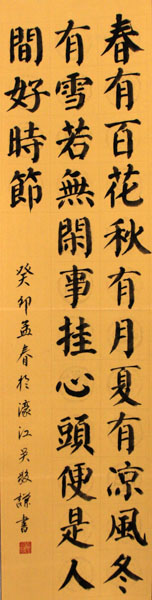 春有百花秋有月夏有凉風冬
有雪若無閑事挂心頭便是人
間好時節
癸卯孟春於濠江吴駿謙書